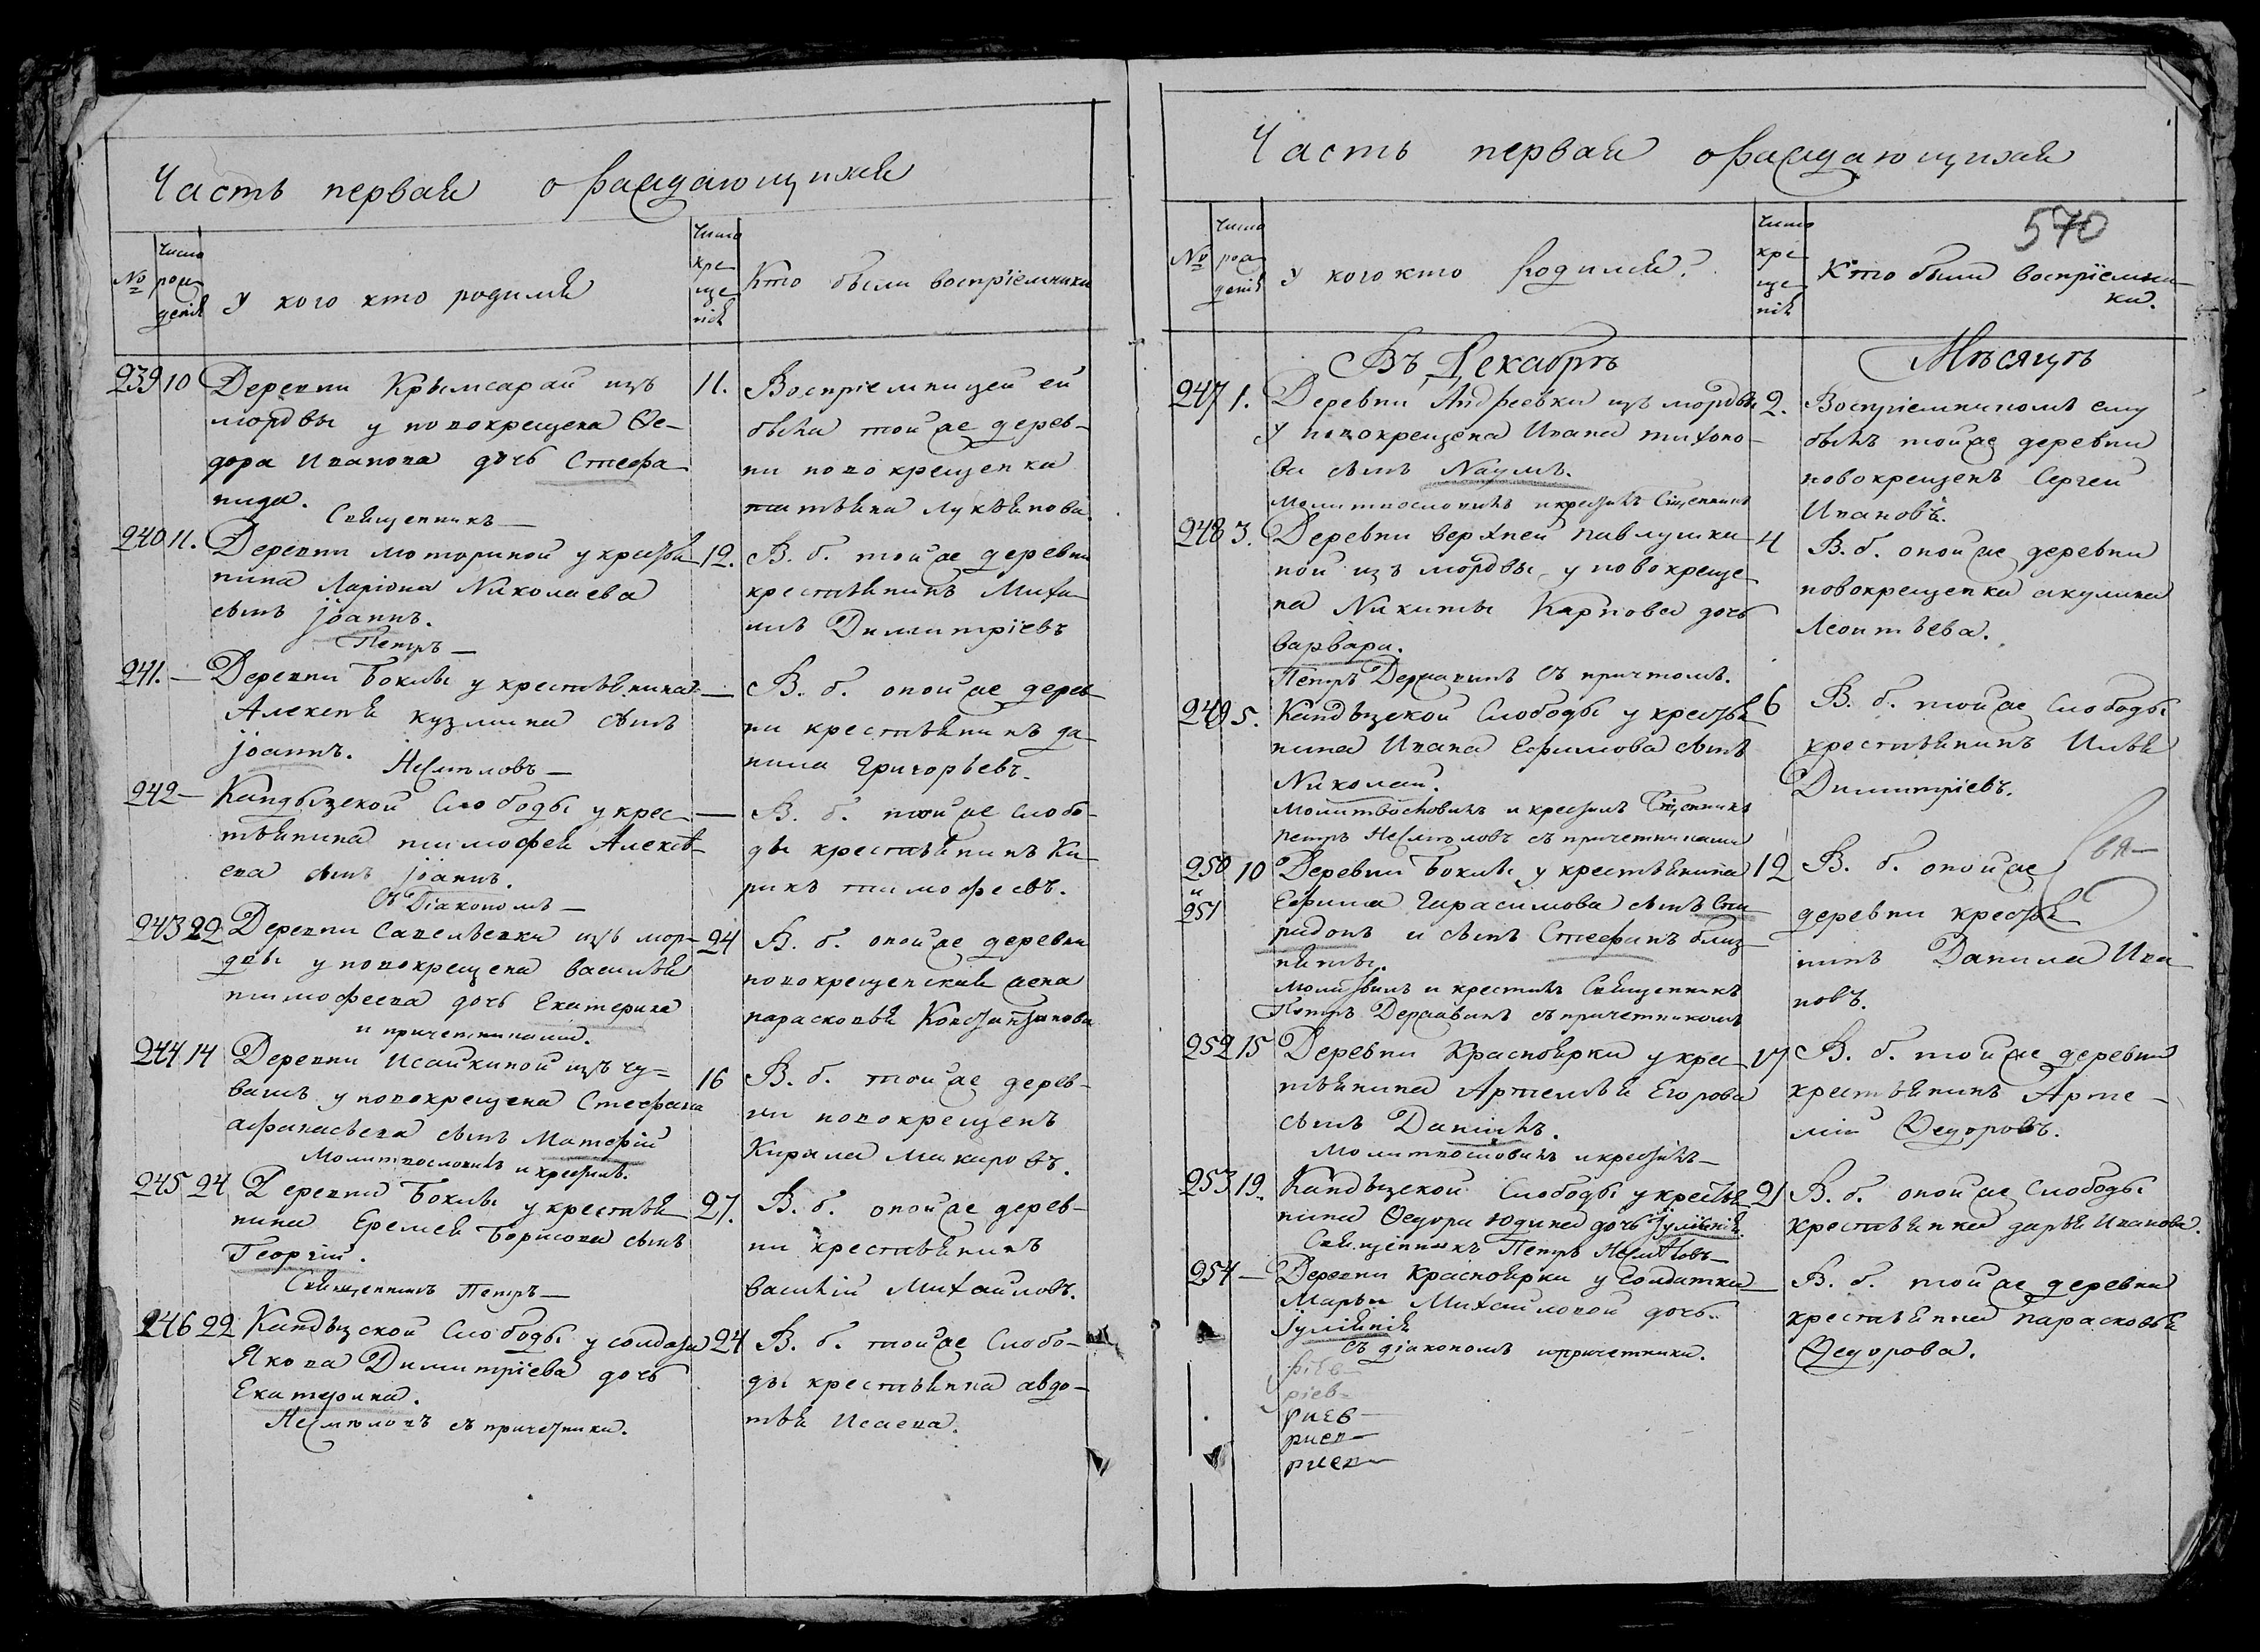 Часть первая ораждающихся
№
Число рождения
У кого кто родился
Число крещения
Кто были воспріемники
239 10 Деревни Крымсарай изъ
мордвы у новокрещена Ѳе-
дора Иванова дочь Стефа
нида.
Священникъ —
11. Воспріемницей ей
была той же дерев-
ни новокрещенка
татьяна Лукьянова.
240 11. Деревни моториной у крестья
нина Ларіона Николаева
сынъ Іоаннъ.
Петръ —
12. В. б. той же деревни
крестьянинъ Михаи
илъ Димитріевъ
241. — Деревни Боклы у крестьянина
Алексѣя кузмина сынъ
Іоаннъ.
Несмѣловъ —
— В. б. оной же дерев-
ни крестьянинъ да-
нила Григорьевъ.
242 — Кандызской Слободы у крес-
тьянина тимофея Алексѣ-
ева сынъ Іоаннъ.
Съ Діакономъ —
— В. б. той же слобо-
ды крестьянинъ Ки-
рикъ тимофеевъ.
243 22 Деревни Савельевки изъ мор-
двы у новокрещена василья
тимофеева дочь Екатерина
и причетниками.
24 В. б. оной же деревни
новокрещенская жена
парасковья Константинова
244 14 Деревни Исайкиной изъ чу=
вашъ у новокрещена Стефана
афанасьева сынъ Матфій
Молитвословилъ и крестилъ.
16 В. б. той же дерев-
ни новокрещенъ
Кирила Макаровъ.
245 24 Деревни Боклы у крестьян
нина Еремея Борисова сынъ
Георгій.
Священникъ Петръ —
27. В. б. оной же дерев-
ни крестьянинъ
василій Михайловъ.
246 22 Кандызской Слободы у солдата
Якова Димитріева дочь
Екатерина.
Несмѣловъ съ причетники.
24 В. б. той же Слобо-
ды крестьянка авдо-
тья Исаева.
Часть первая ораждающихся
570
№
Число рожденія
У кого кто родился?
Число крещенія
Кто были воспріемни-
ки.
Въ Декабрѣ Мѣсяцѣ
247 1. Деревни Андреевки изъ мордвы
У новокрещена Ивана тихоно-
ва сынъ Наумъ.
Молитвословилъ и крестилъ Священникъ
2. Воспріемникомъ ему
былъ той же деревни
новокрещенъ Сергей
Ивановъ.
248 3. Деревни верхней павлушки-
ной изъ мордвы у новокреще-
на Никиты Карпова дочь
варвара.
Петръ Державинъ съ причтомъ.
4 В. б. оной же деревни
новокрещенка акулина
Леонтьева.
249 5. Кандызской Слободы у крестья
нина Ивана Ефимова сынъ
Николай.
Молитвословилъ и крестилъ Священникъ
петръ Несмѣловъ съ причетниками
6 В. б. той же Слободы
крестьянинъ Илья
Димитріевъ.
250 и 251 10 Деревни Боклы у крестьянина
Ефима Гирасимова сынъ Спи
ридонъ и сынъ Стефанъ близ-
няты.
Молитвилъ и крестилъ Священникъ
Петръ Державинъ съ причетникомъ
12 В. б. оной же
деревни крестья
нинъ Данила Ива
новъ.
252 15 Деревни Красноярки у крес-
тьянина Артемья Егорова
сынъ Даніилъ.
Молитвословилъ и крестилъ —
17 В. б. той же деревни
крестьянинъ Арте-
мій Ѳедоровъ.
253 19. Кандызской Слободы у крестья
нина Ѳедора Юдина дочь Іуліанія.
Священникъ Петръ Несмѣловъ —
21 В. б. оной же Слободы
крестьянка дарья Иванова.
254 — Деревни Красноярки у Солдатки
Марьи Михайловой дочь.
Іуліанія
съ діакономъ и причетники.
— В. б. той же деревни
крестьянка парасковья
Ѳедорова.
ріев-
риев-
риев-
риев-